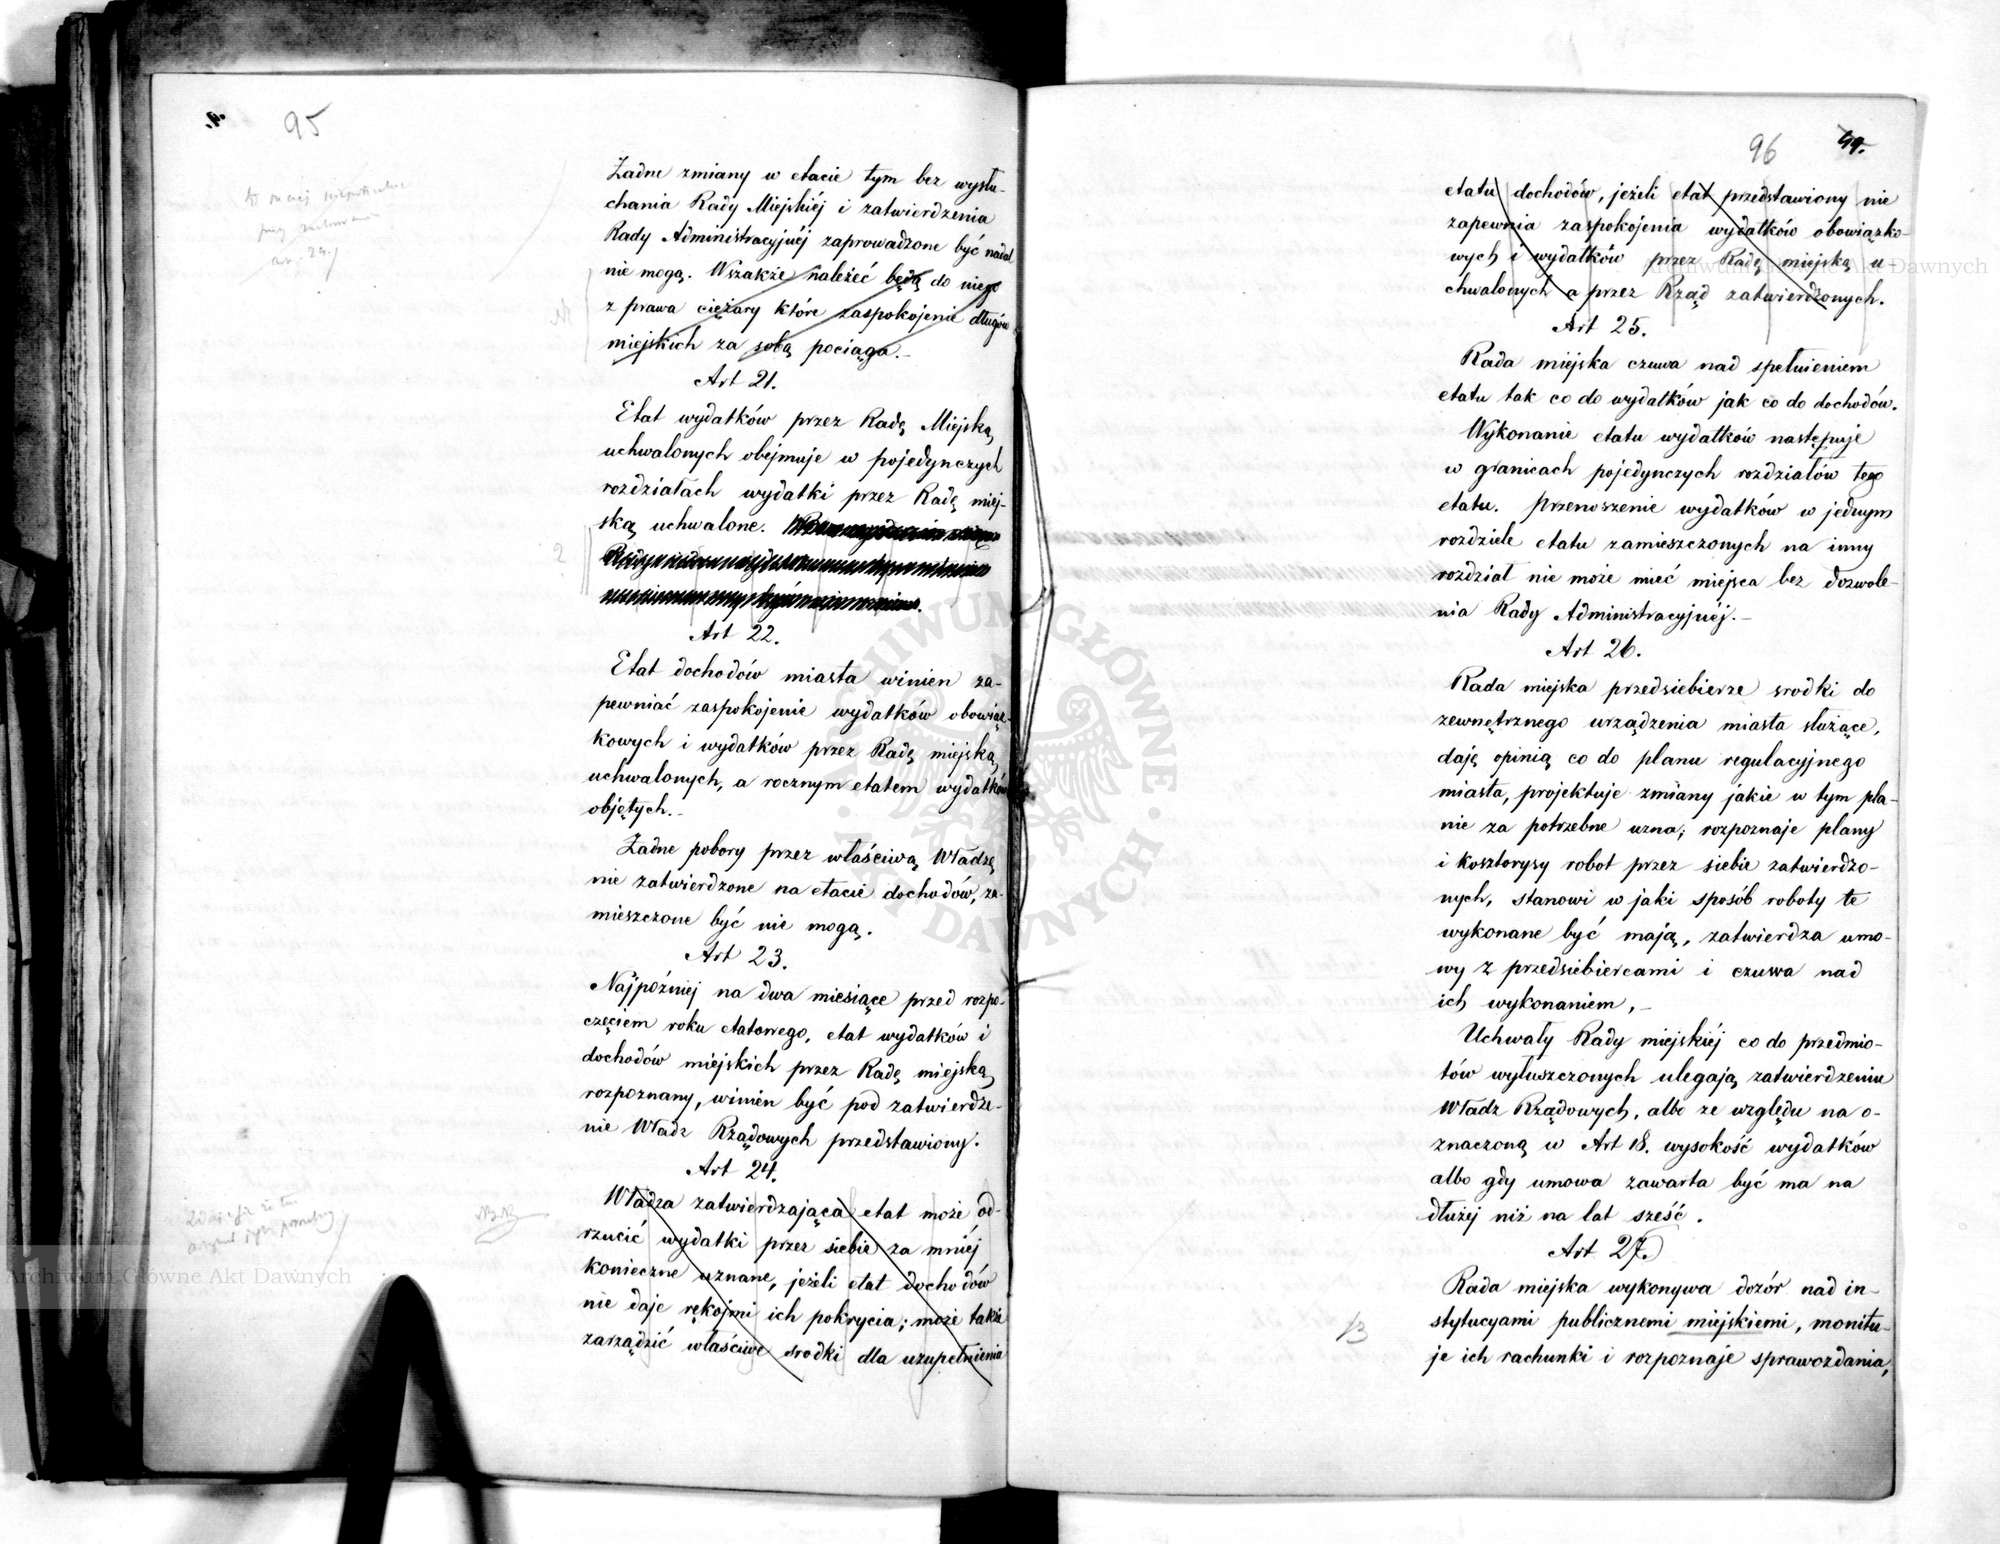 95
Żadne zmiany w etacie tym bez wysłu-
chania Rady Miejskiéj i zatwierdzenia
Rady Administracyjnéj zaprowadzone być nadal
nie mogą. Wszakże należeć będą do niego
z prawa ciężary które zaspokojenie długów
miejskich za sobą pociąga.-
Art 21.
Etat wydatków przez Radę Miejską
uchwalonych obejmuje w pojedynczych
rozdziałach wydatki przez Radę miej-
ską uchwalone.
2
Art 22.
Etat dochodów miasta winien za-
pewniać zaspokojenie wydatków obowiąz-
kowych i wydatków przez Radę miejską
uchwalonych, a rocznym etatem wydatków
objętych.-
Żadne pobory przez właściwą Władzę
nie zatwierdzone na etacie dochodów, za-
mieszczone być nie mogą.
Art 23.
Najpóźniej na dwa miesiące przed rozpo-
częciem roku etatowego, etat wydatków i
dochodów miejskich przez Radę miejską
rozpoznany, winien być pod zatwierdze-
nie Władz Rządowych przedstawiony.
Art 24.
Władza zatwierdzająca etat może od-
rzucić wydatki przez siebie za mniéj
konieczne uznane, jeżeli etat dochodów
nie daje rękojmi ich pokrycia; może także
zarządzić właściwe srodki dla uzupełnienia
96
99.
etatu dochodów, jeżeli etat przedstawiony nie
zapewnia zaspokójenia wydatków obowiązko-
wych i wydatków przez Radę miejską u-
chwalonych a przez Rząd zatwierdzonych.
Art 25.
Rada miejska czuwa nad spełnieniem
etatu tak co do wydatków jak co do dochodów.
Wykonanie etatu wydatków następuje
w granicach pojedynczych rozdziałów tego
etatu. Przenoszenie wydatków w jednym
rozdziele etatu zamieszczonych na inny
rozdział nie może mieć miejsca bez dozwole-
nia Rady Administracyjnéj.-
Art 26.
Rada miejska przedsiebierze srodki do
zewnętrznego urządzenia miasta służące,
daję opinią co do planu regulacyjnego
miasta, projektuje zmiany jakie w tym pla-
nie za potrzebne uzna; rozpoznaje plany
i kosztorysy robot przez siebie zatwierdzo-
nych, stanowi w jaki sposób roboty te
wykonane być mają, zatwierdza umo-
wy z przedsiebiercami i czuwa nad
ich wykonaniem,-
Uchwały Rady miejskiéj co do przedmio-
tów wyłuszczonych ulegają zatwierdzeniu
Władz Rządowych, albo ze względu na o-
znaczoną w Art 18. wysokość wydatków
albo gdy umowa zawarta być ma na
dłużej niż na lat sześć.
Art 27.
Rada miejska wykonywa dozór nad in-
stytucyami publicznemi miejskiemi, monitu-
je ich rachunki i rozpoznaje sprawozdania,
13
ARCHIWUM GŁÓWNE
AKT DAWNYCH
Archiwum Główne Akt Dawnych
Archiwum Główne Akt Dawnych